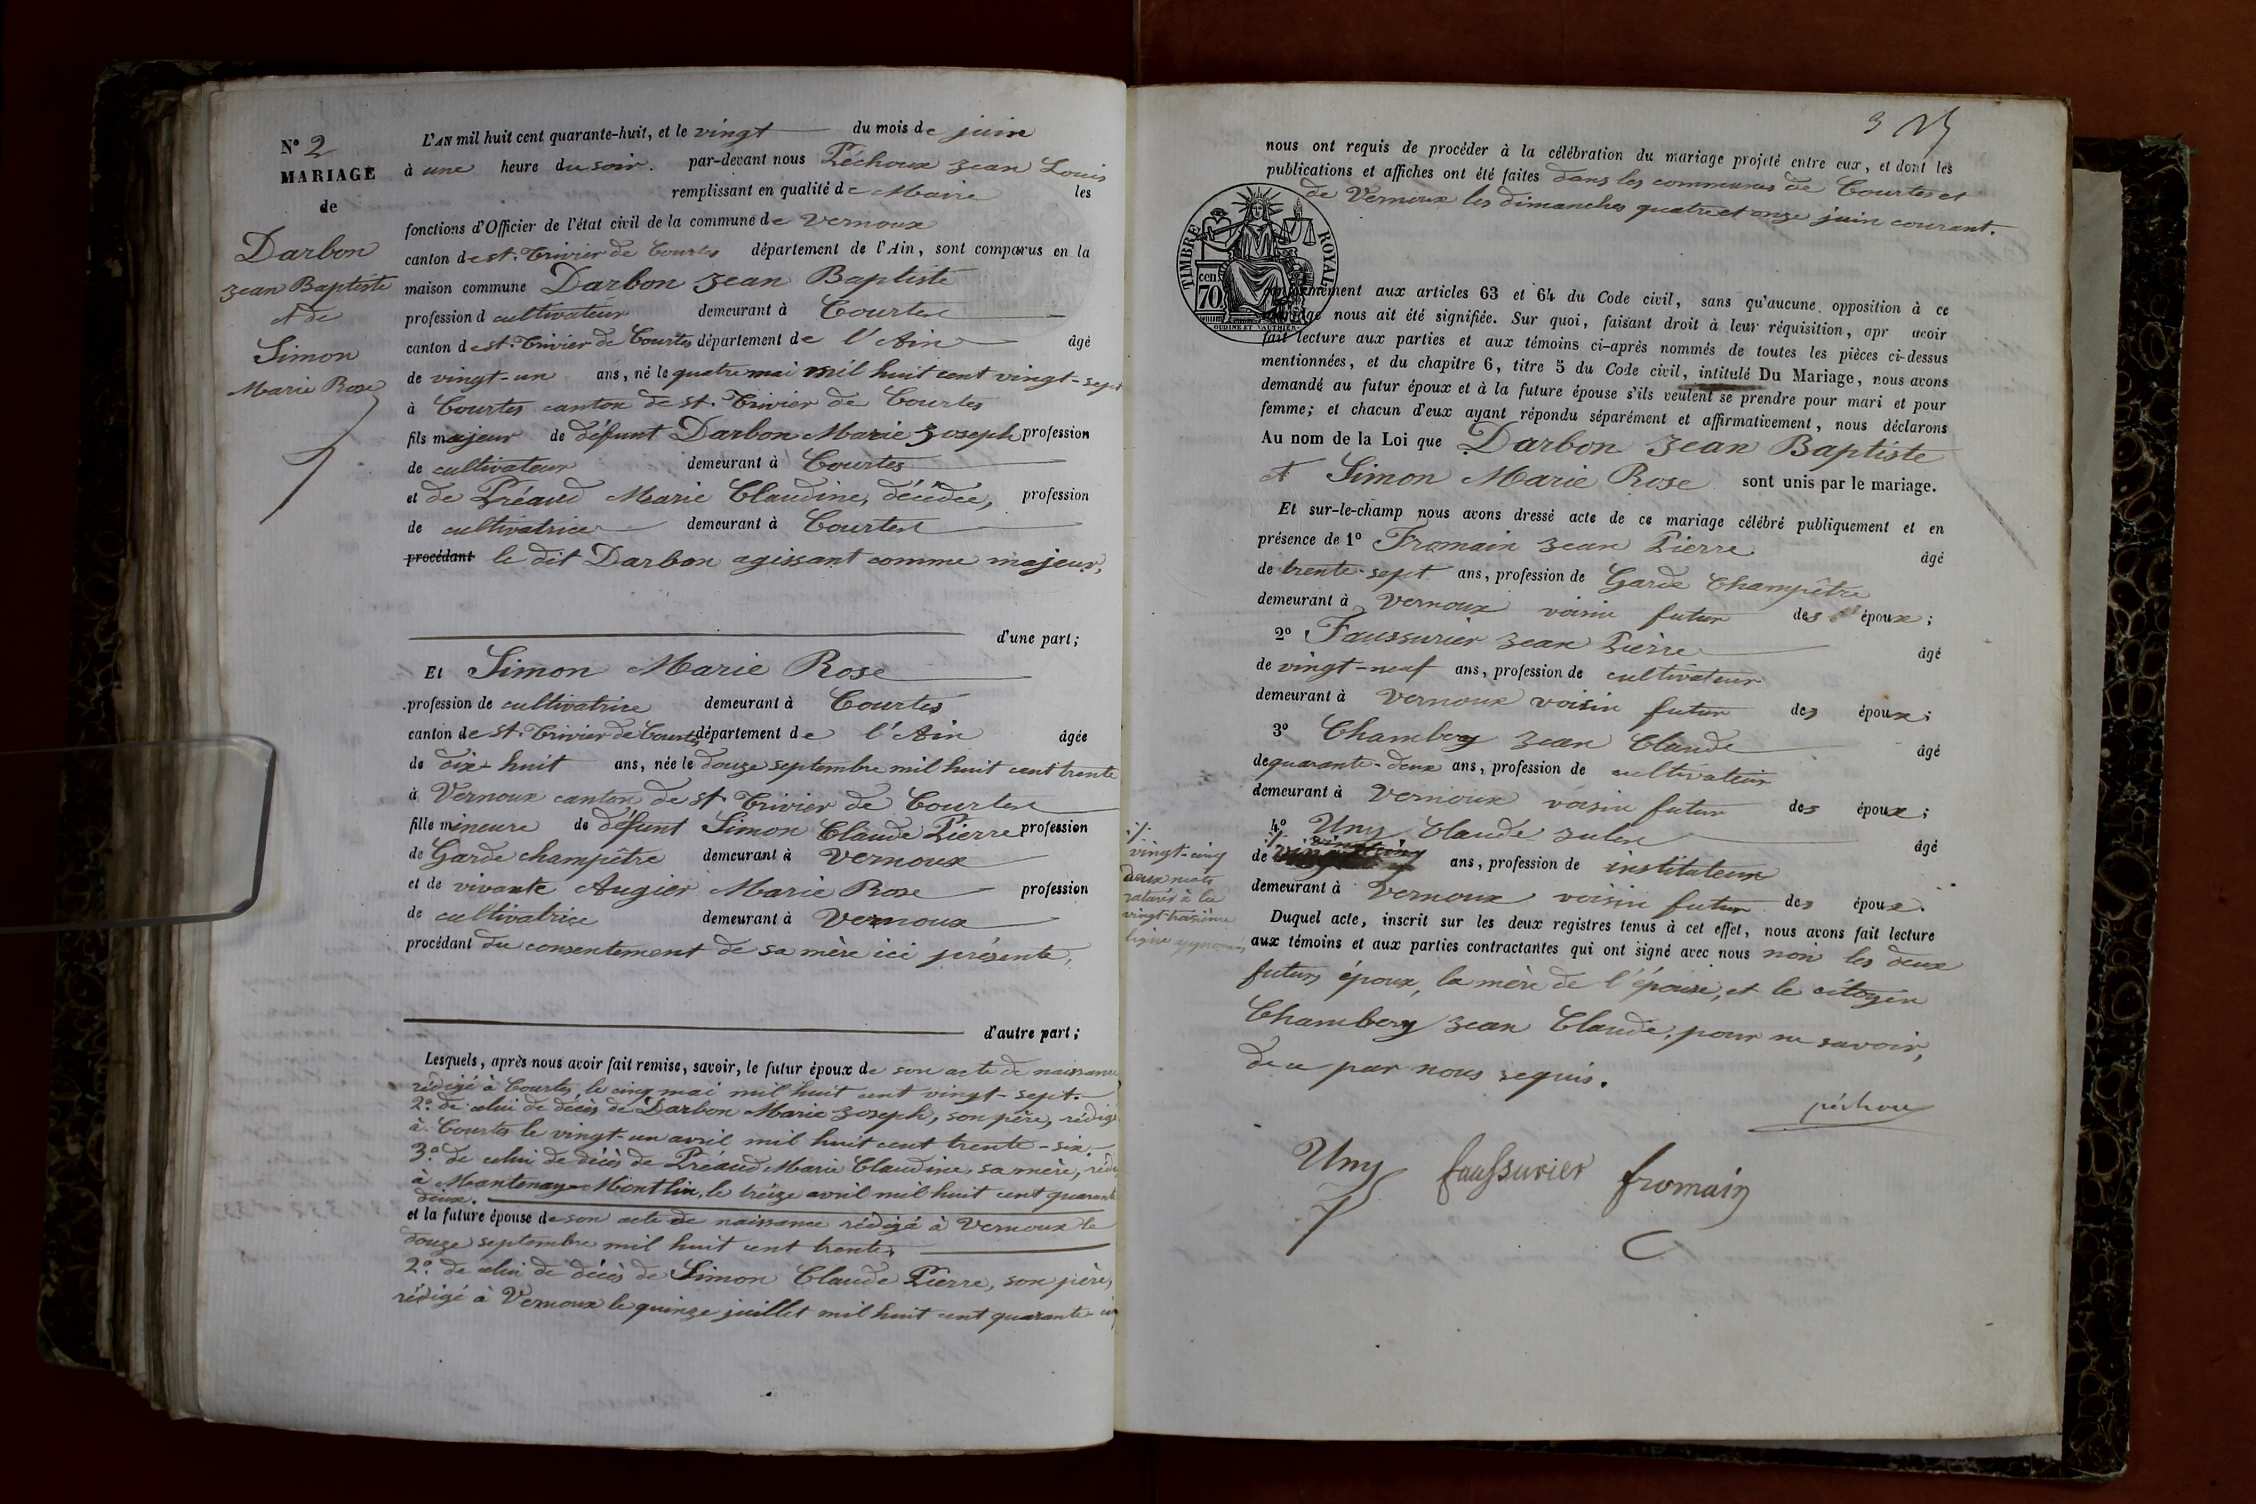 N° 2
MARIAGE
de
Darbon
Jean Baptiste
et de
Simon
Marie Rose
L'AN mil huit cent quarante-huit, et le vingt du mois de juin
à une heure du soir. par-devant nous Péchoux Jean Louis
remplissant en qualité de Maire les
fonctions d'Officier de l'état civil de la commune de Vernoux
canton de St. Trivier de Courtes département de l'Ain, sont comparus en la
maison commune Darbon Jean Baptiste
profession d cultivateur demeurant à Courtes
canton de St. Trivier de Courtes département de l'Ain âgé
de vingt-un ans, né le quatre mai mil huit cent vingt-sept
à Courtes canton de St. Trivier de Courtes
fils majeur de défunt Darbon Marie Joseph profession
de cultivateur demeurant à Courtes
et de Préaud Marie Claudine, décédée, profession
de cultivatrice demeurant à Courtes
procédant le dit Darbon agissant comme majeur,
d'une part;
Et Simon Marie Rose
profession de cultivatrice demeurant à Courtes
canton de St. Trivier de Courtes département de l'Ain âgée
de dix-huit ans, née le douze septembre mil huit cent trente
à Vernoux canton de St Trivier de Courtes
fille mineure de défunt Simon Claude Pierre profession
de Garde champêtre demeurant à Vernoux
et de vivante Augier Marie Rose profession
de cultivatrice demeurant à Vernoux
procédant du consentement de sa mère ici présente,
d'autre part;
Lesquels, après nous avoir fait remise, savoir, le futur époux de son acte de naissance
rédigé à Courtes, le cinq mai mil huit cent vingt-sept.
2° de celui de décès de Darbon Marie Joseph, son père, rédigé
à Courtes le vingt-un avril mil huit cent trente-six.
3° de celui de décès de Préaud Marie Claudine, sa mère, rédi
à Mantenay-Montlin, le treize avril mil huit cent quarante
deux.
et la future épouse de son acte de naissance rédigé à Vernoux le
douze septembre mil huit cent trente,
2° de celui de décès de Simon Claude Pierre, son père,
rédigé à Vernoux le quinze juillet mil huit cent quarante-cinq
3
nous ont requis de procéder à la célébration du mariage projeté entre eux, et dont les
publications et affiches ont été faites dans les communes de Courtes et
de Vernoux les dimanches quatre et onze juin courant.
TIMBRE ROYAL
cen 70
OUDINE ET VAUTHIER
conformément aux articles 63 et 64 du Code civil, sans qu'aucune opposition à ce
mariage nous ait été signifiée. Sur quoi, faisant droit à leur réquisition, apr avoir
fait lecture aux parties et aux témoins ci-après nommés de toutes les pièces ci-dessus
mentionnées, et du chapitre 6, titre 5 du Code civil, intitulé Du Mariage, nous avons
demandé au futur époux et à la future épouse s'ils veulent se prendre pour mari et pour
femme; et chacun d'eux ayant répondu séparément et affirmativement, nous déclarons
Au nom de la Loi que Darbon Jean Baptiste
et Simon Marie Rose sont unis par le mariage.
Et sur-le-champ nous avons dressé acte de ce mariage célébré publiquement et en
présence de 1° Fromain Jean Pierre âgé
de trente-sept ans, profession de Garde Champêtre
demeurant à Vernoux voisin futur des époux;
2° Faussurier Jean Pierre âgé
de vingt-neuf ans, profession de cultivateur
demeurant à Vernoux voisin futur des époux;
3° Chambory Jean Claude âgé
de quarante-deux ans, profession de cultivateur
demeurant à Vernoux voisin futur des époux;
4° Uny Claude Jules âgé
de vingt cinq ans, profession de instituteur
demeurant à Vernoux voisin futur des époux.
vingt-cinq
deux mots
raturés à la
vingt troisième
ligne
Duquel acte, inscrit sur les deux registres tenus à cet effet, nous avons fait lecture
aux témoins et aux parties contractantes qui ont signé avec nous non les deux
futurs époux, la mère de l'épouse, et le citoyen
Chambory Jean Claude, pour ne savoir,
de ce par nous requis.
péchoux
Uny faussurier fromain